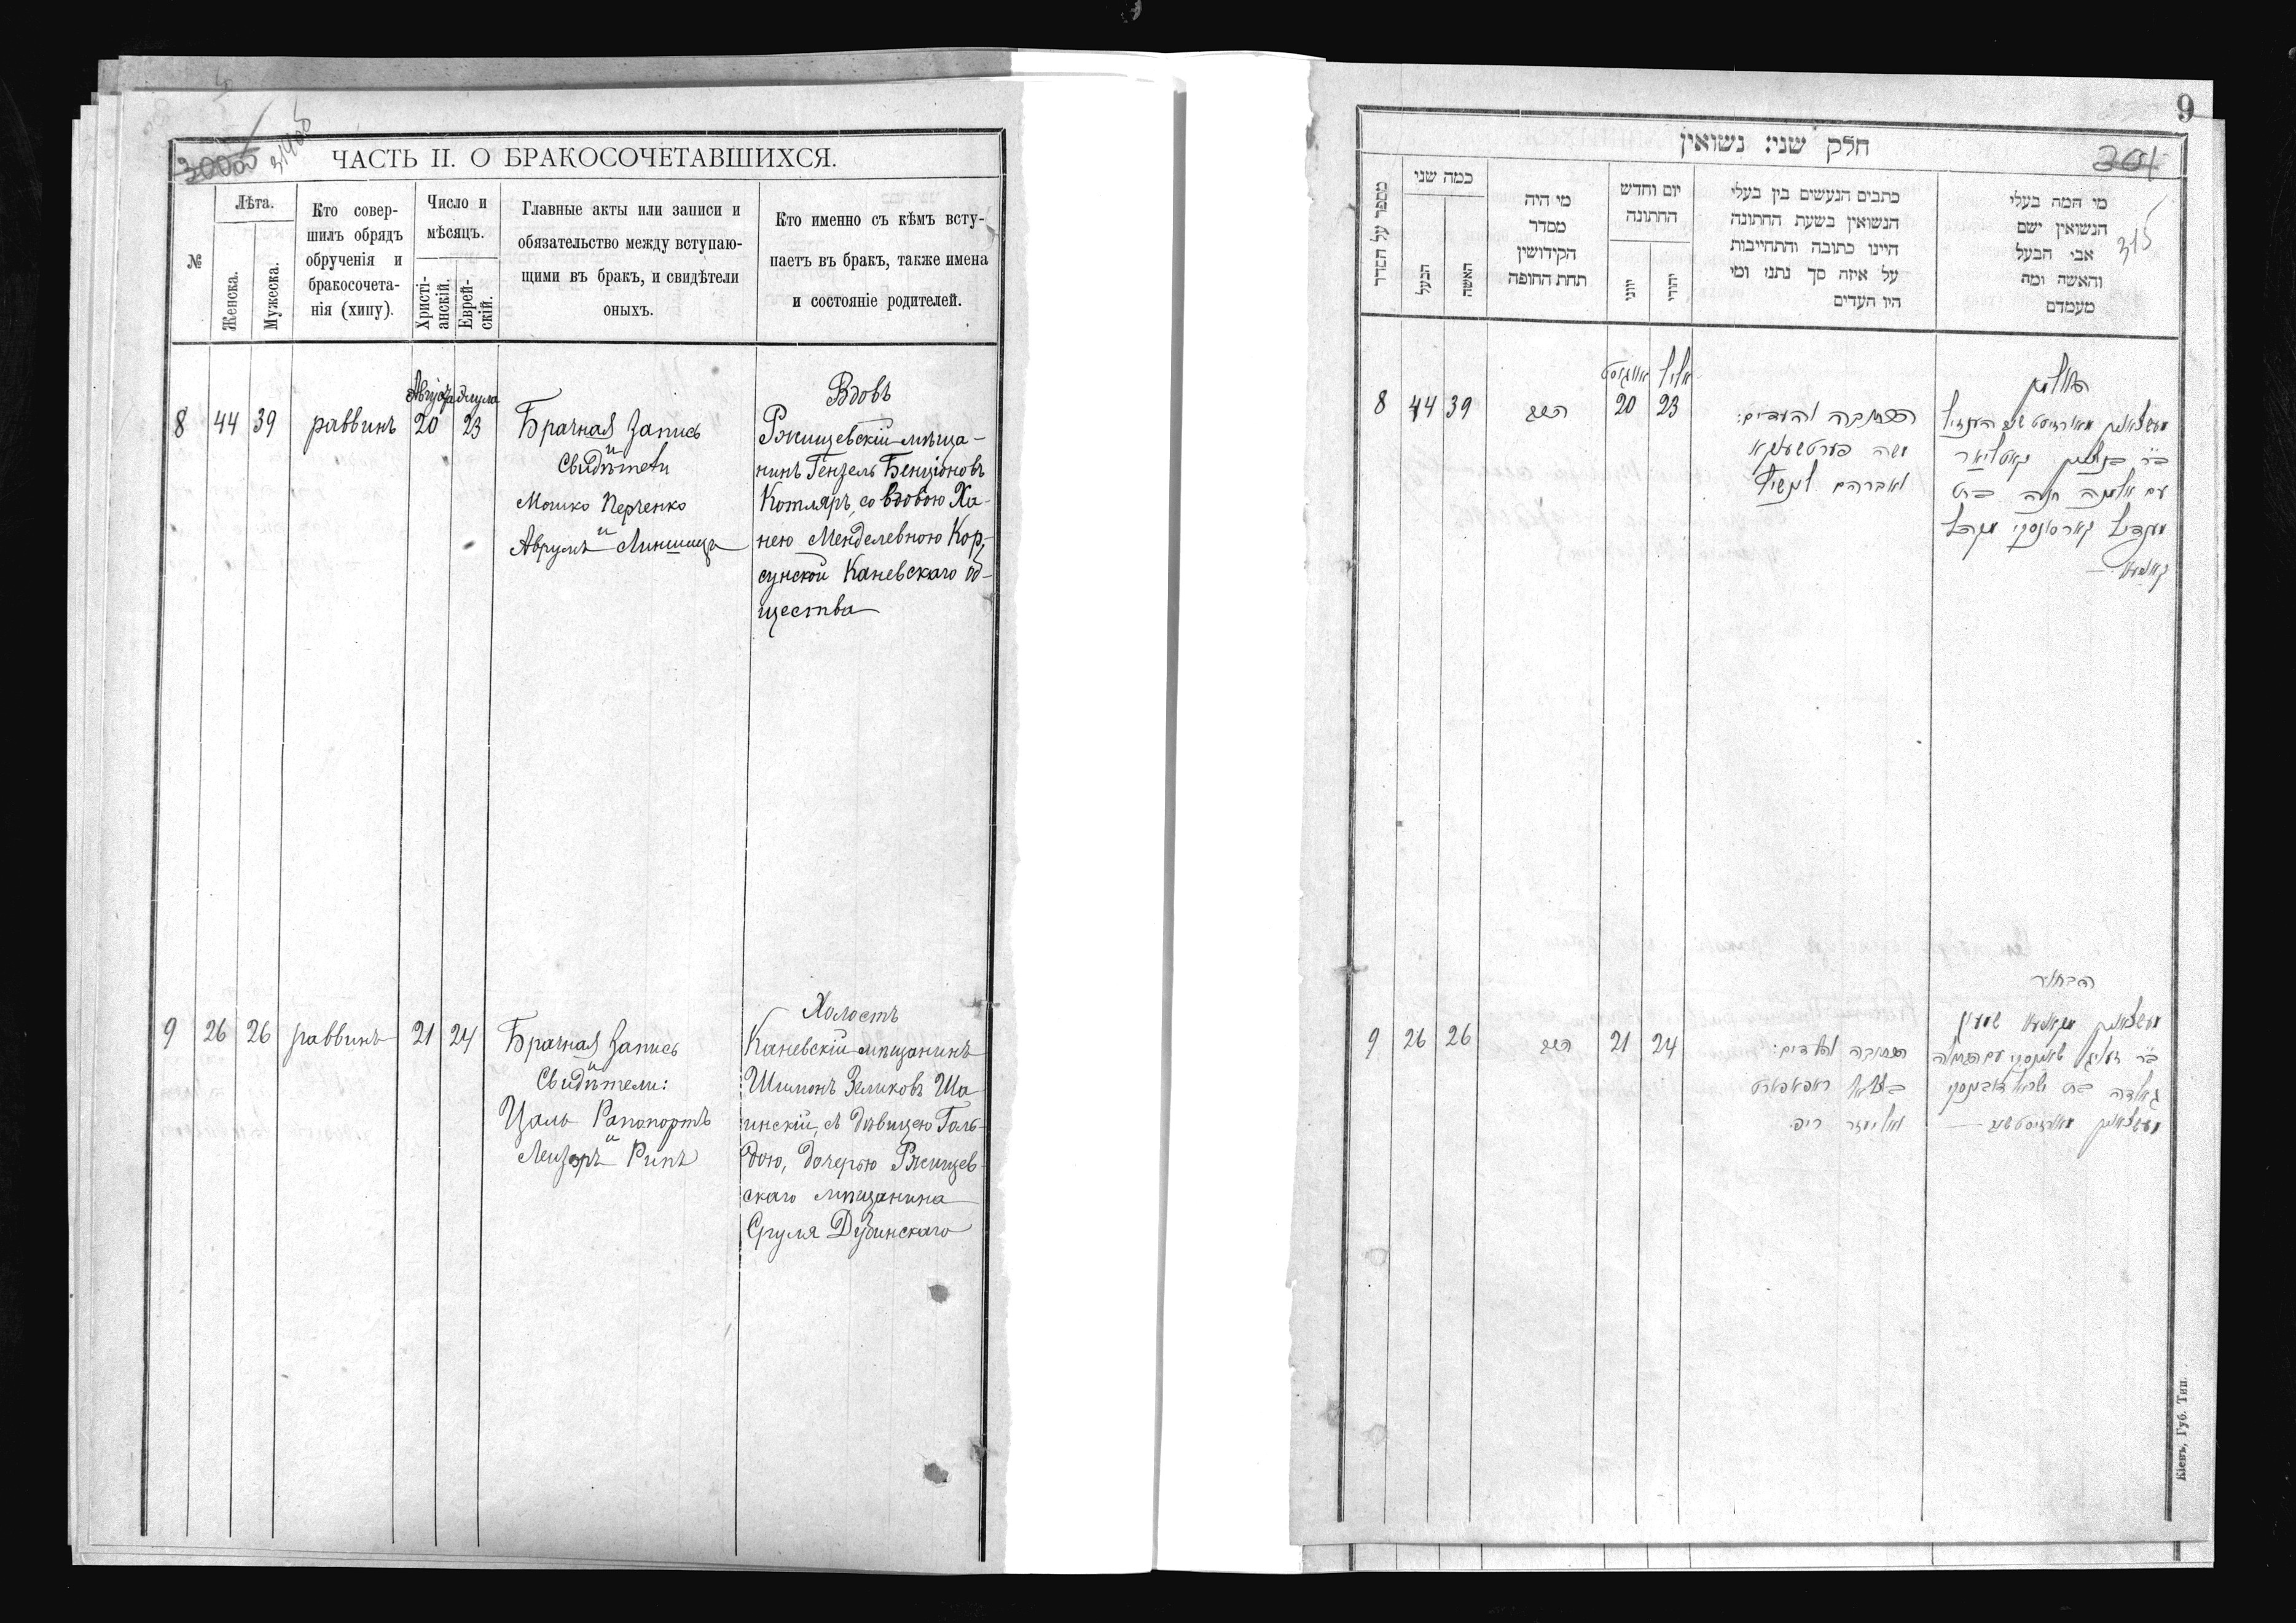 ЧАСТЬ II. О БРАКОСОЧЕТАВШИХСЯ.
№
Лѣта.
Женска.
Мужеска.
Кто совер-
шилъ обрядъ
обрученія и
бракосочета-
нія (хипу).
Число и
мѣсяцъ.
Христі-
анскій.
Еврей-
скій.
Главные акты или записи и
обязательство между вступаю-
щими въ бракъ, и свидѣтели
оныхъ.
Кто именно съ кѣмъ всту-
паетъ въ бракъ, также имена
и состояніе родителей.
8 44 39 раввинъ 20 23
Брачная Запись
и
Свидѣтели
Мошко Перченко
и
Аврумъ
Вдовъ
Ржищевскій мѣща-
нинъ Гензель Бенціоновъ
Котляръ, со вдовою Ха-
нею Менделевною Кор-
сунской Каневскаго об-
щества
9 26 26 раввинъ 21 24
Брачная Запись
и
Свидѣтели:
Цаль Рапопортъ
и
Лейзоръ Рипъ
Холостъ
Каневскій мѣщанинъ
Шимонъ Зеликовъ Ша-
инскій, съ дѣвицею Голь-
дою, дочерью Ржищев-
скаго мѣщанина
Сруля Дубинскаго
9
חלק שני: נשואין
304
315
מספר על הסדר
כמה שני
הבעל
האשה
מי היה
מסדר
הקידושין
תחת החופה
יום וחדש
החתונה
יווני
יהודי
כתבים הנעשים בין בעלי
הנשואין בשעת החתונה
היינו כתובה והתחייבות
על איזה סך נתנו ומי
היו העדים
מי המה בעלי
הנשואין ישם
אבי הבעל
והאשה ומה
מעמדם
אווגוסט אלול
8 44 39 הרב 20 23
הכתובה והעדים:
משה פערטשענקא
ואברהם
האלמן
בר בנציון קאטליאר
עם אלמנה חנה בת
מענדיל קארסונסקי מקהל
קאנעוו
9 26 26 הרב 21 24
הכתובה והעדים:
בצלאל ראפאפארט
ואליעזר ריפ
הבחור
מעשצאנין מקאנעוו שמעון
בר זעליג שאינסקי עם הבתולה
גאלדה בת ישראל דובינסקי
Кіевъ, Губ. Тип.